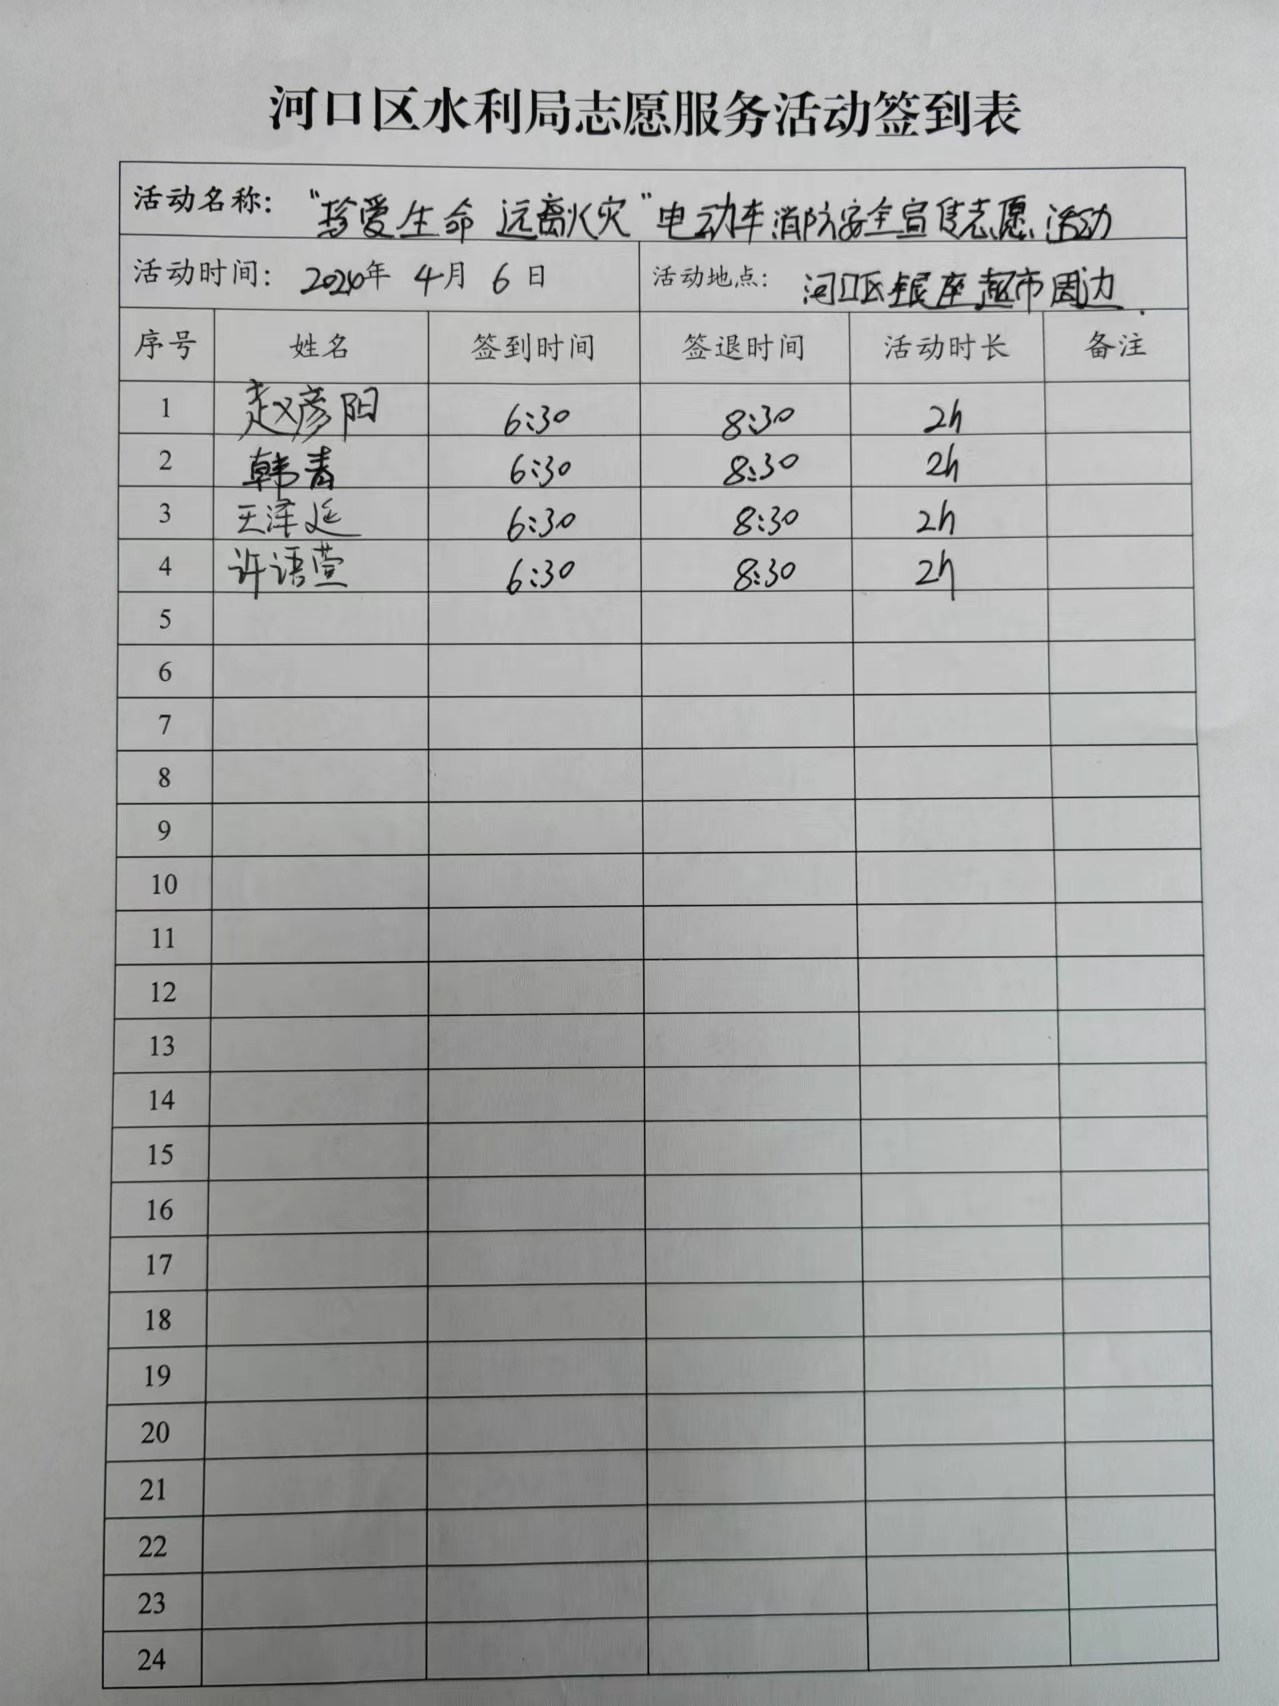 河口区水利局志愿服务活动签到表
活动名称： “珍爱生命 远离火灾”电动车消防安全宣传志愿活动
活动时间： 2024年 4月 6日 活动地点： 河口区银座超市周边.
序号 姓名 签到时间 签退时间 活动时长 备注
1 赵彦阳 6:30 8:30 2h
2 韩青 6:30 8:30 2h
3 王泽延 6:30 8:30 2h
4 许语萱 6:30 8:30 2h
5
6
7
8
9
10
11
12
13
14
15
16
17
18
19
20
21
22
23
24